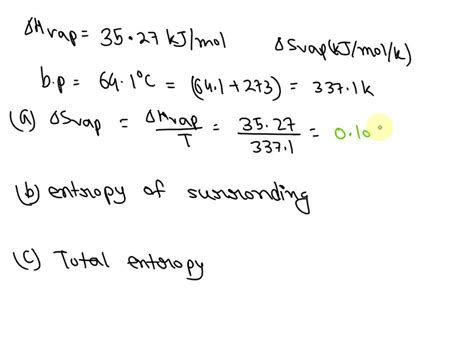 ΔHvap = 35.27 kJ/mol ΔSvap(kJ/mol/k)
b.p = 64.1°C = (64.1+273) = 337.1k
(a) ΔSvap = ΔHvap/T = 35.27/337.1 = 0.10
(b) entropy of surronding
(c) Total entropy